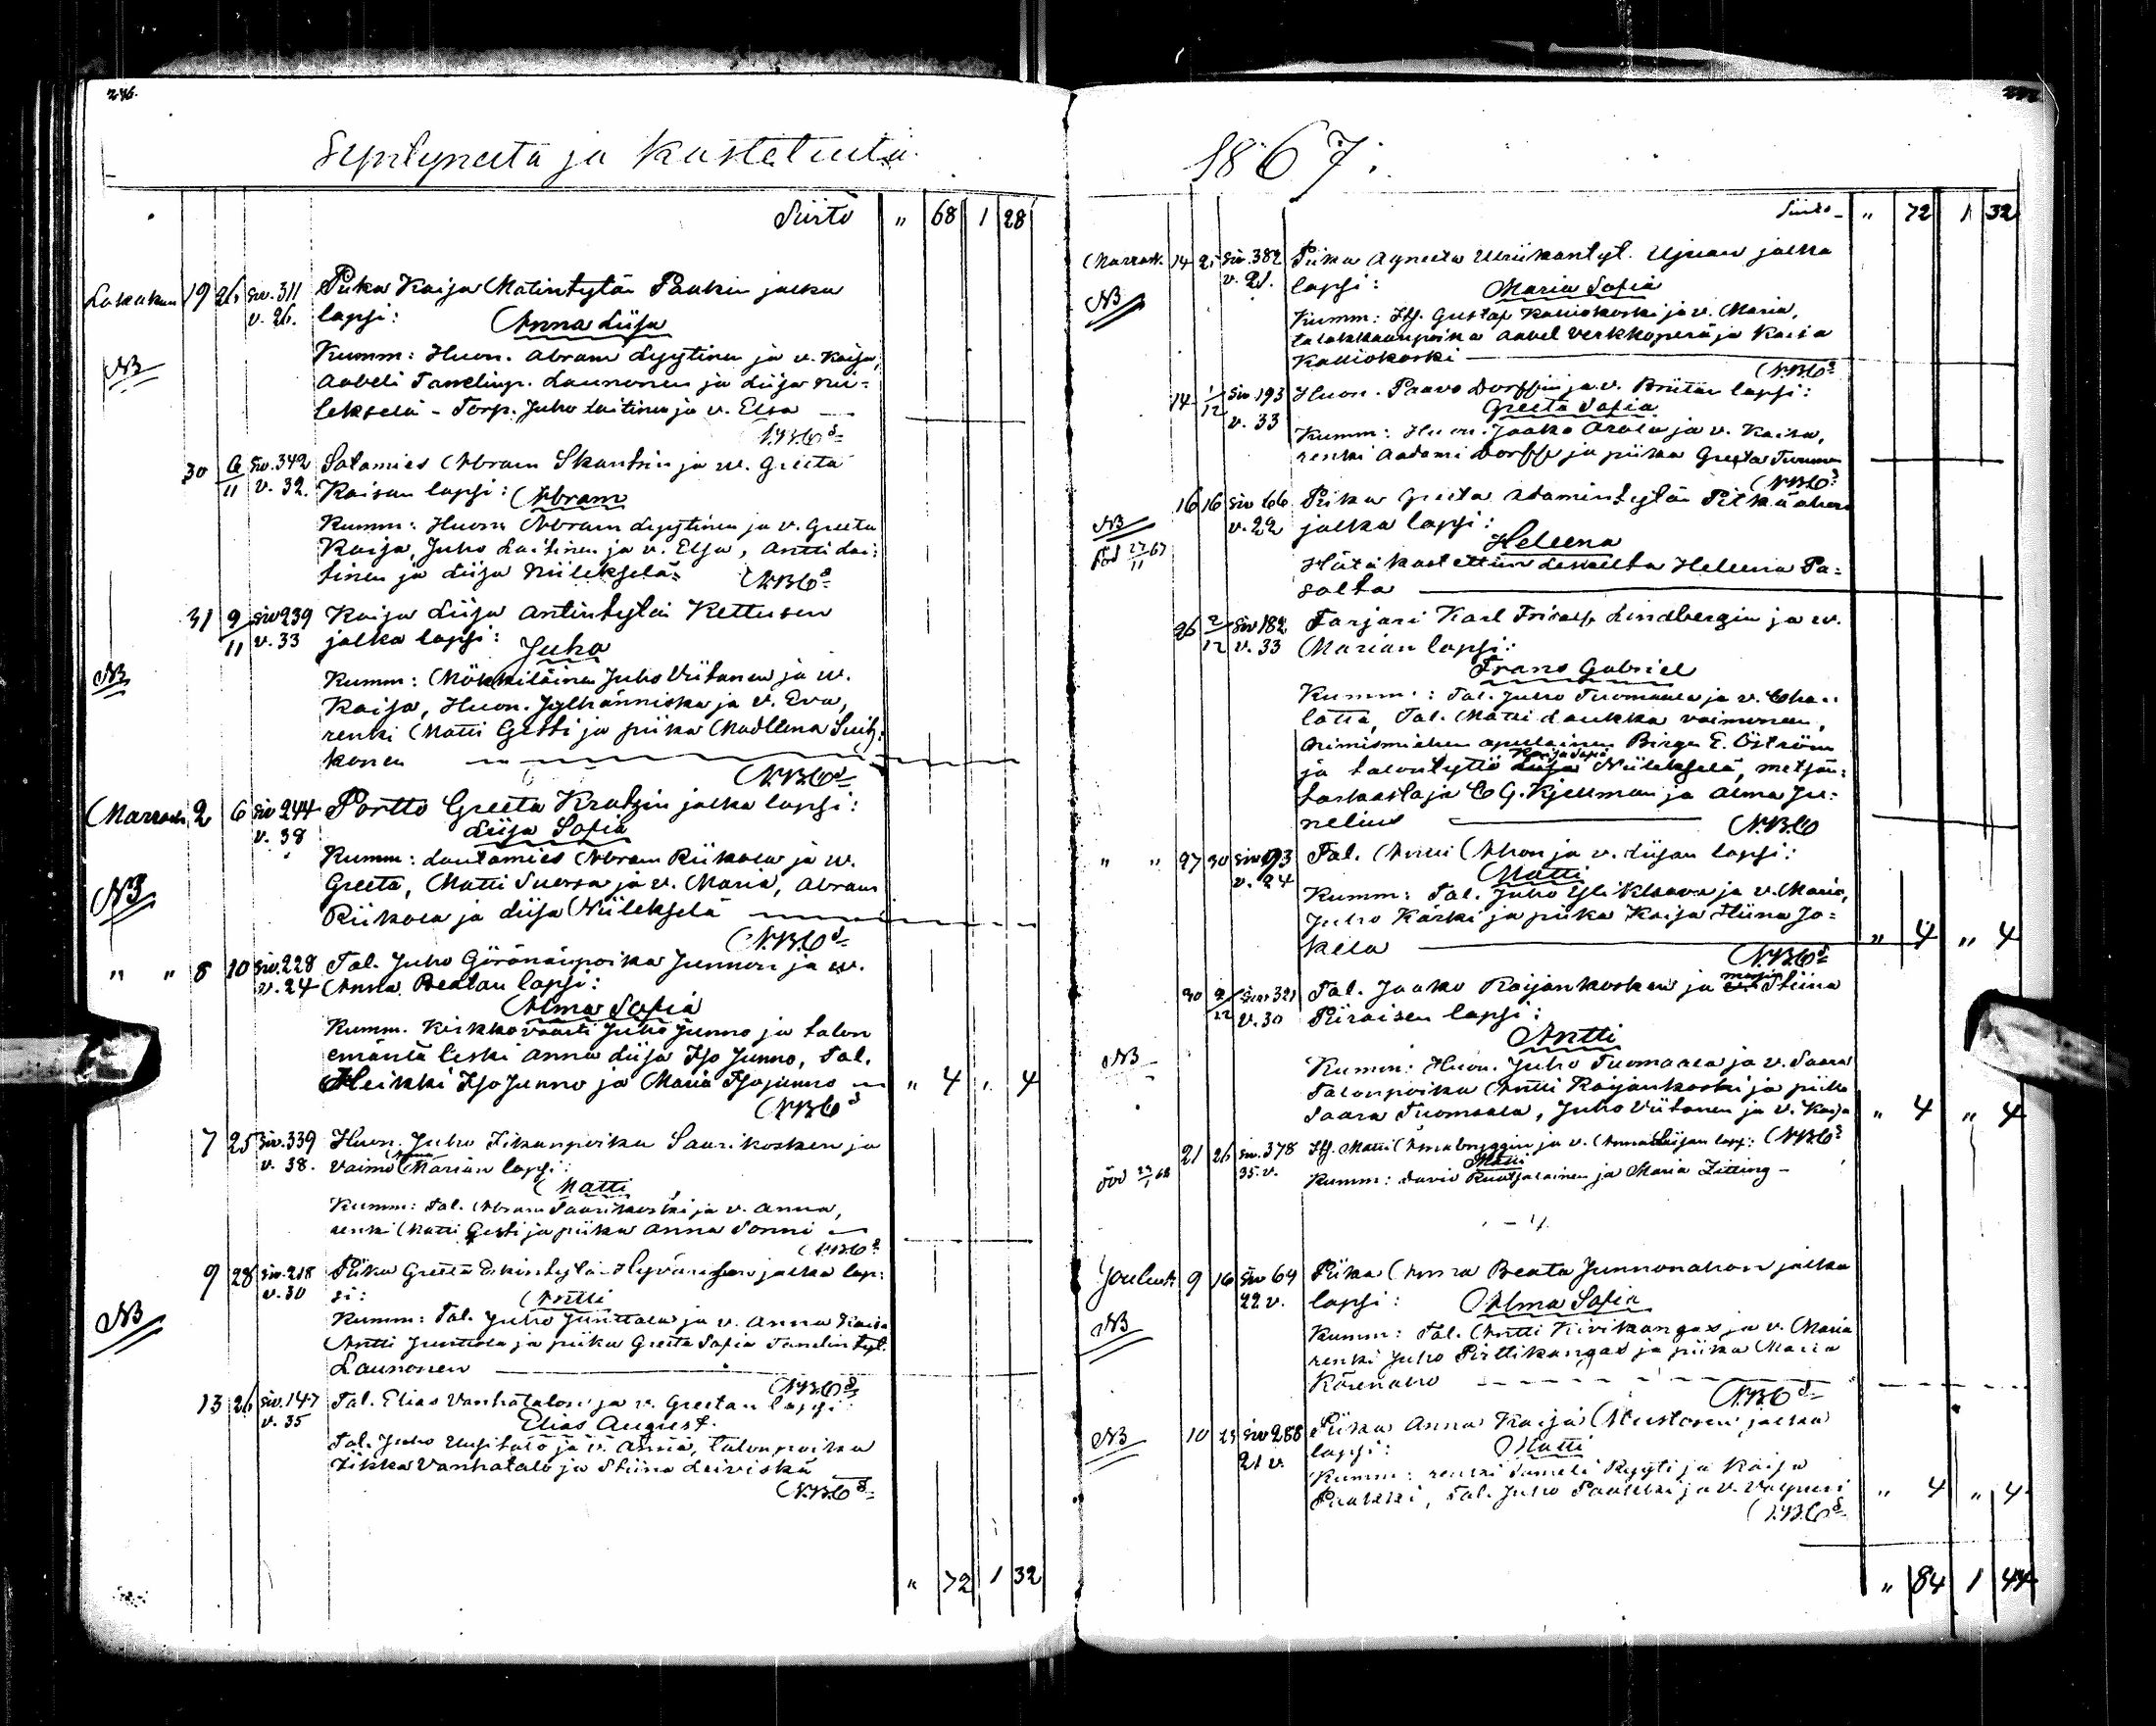 246.
Syntyneitä ja kastetuita.
Siirto " 68 1 28
Lokakuu 19 26 siv. 311 Piika Kaija Matintytän Paakin jalka
v. 26. lapsi: Anna Liisa
NB Kumm: Huon. Abram Lyytinen ja v. Kaija,
Aabeli Tanelinp. Launonen ja Liisa Nii-
leksela - Torp. Juho Laitinen ja v. Elsa
N.B.Co
30 6/11 siv. 342 Satamies Abram Skantsin ja w. Greeta
v. 32. Kaisan lapsi: Abram
Kumm: Huon. Abram Lyytinen ja v. Greeta
Kaija, Juho Laitinen ja v. Elsa, Antti Lai-
tinen ja Liisa Niilekselä N.B.Co
31 9/11 siv 239 Kaija Liisa Antintytän Kettusen
v. 33 jalka lapsi: Juho
NB Kumm: Mökkiläinen Juho Viitanen ja w.
Kaija, Huon. Jylhänniska ja v. Eva,
renki Matti Gesti ja piika Madleena
konen
N.B.Co
Marrask 2 6 siv 244 Portto Greeta Kratzin jalka lapsi:
v. 38 Liisa Sofia
Kumm: Lautamies Abram Riikola ja w.
NB Greeta, Matti Suorsa ja v. Maria, Abram
Riikola ja Liisa Niilekselä
N.B.Co
" " 8 10 siv. 228 Tal. Juho Göränäinpoika Junnon ja w.
v. 24 Anna Beatan lapsi:
Alma Sofia
Kumm. Kirkkoväärti Juho Junno ja talon
emäntä leski Anna Liisa Iso Junno, Tal.
Heikki Iso Junno ja Maria Isojunno " 4 " 4
N.B.Co
7 25 siv. 339 Huon. Juho Iikanpoika Saarikosken ja
v. 38. vaimo Anna Marian lapsi:
Matti
Kumm: Tal. Abram Saarikoski ja v. Anna,
renki Matti Gesti ja piika Anna Sonni
N.B.Co
9 28 siv. 218 Piika Greeta Hyvärisen jalka lap-
v. 30 si: Antti
NB Kumm: Tal. Juho Junttola ja v. Anna Kaisa
Antti Junttola ja piika Greeta Sofia Tanelintyt.
Launonen
N.B.Co
13 26 siv. 147 Tal. Elias Vanhatalon ja v. Greetan lapsi
v. 35 Elias August.
Tal. Juho Uusitalo ja v. Anna, talonpoika
Iikka Vanhatalo ja Stiina Leiviskä
N.B.Co
" 72 1 32
1867:
Siirto " 72 1 32
Marrask. 14 21 siv. 382 Piika Agneeta Ulriikantyt. Ujuan jalka
v. 21. lapsi: Maria Sofia
NB Kumm: Itz. Gustaf Kalliokoski ja v. Maria,
talokkaanpoika Aabel Verkkoperä ja Kaisa
Kalliokoski
N.B.Co
14 1/12 siv. 193 Huon. Paavo Dorffin ja v. Briitan lapsi:
v. 33 Greeta Sofia
Kumm: Huon. Jaako Arola ja v. Kaisa,
renki Aadami Dorff ja piika Greeta
N.B.Co
16 16 siv 66 Piika Greeta Adamintytän Pitkäahon
NB v. 22 jalka lapsi:
död 27/11 67 Heleena
Hätäkastettiin Leskeltä Heleena Pa-
salta
26 2/12 siv 182 Farjari Karl Lindbergin ja w.
v. 33 Marian lapsi:
Frans Gabriel
Kumm: Tal. Juho Tuomaala ja v. Cha-
lotta, Tal. Matti Laukka vaimoneen,
nimismiehen apulainen Birger E. Öström
ja talontyttö Kaija Sofia Liisa Niilekselä, metsän-
tarkastaja C G. Kjellman ja Alma Ju-
nelius N.B.Co
" " 27 30 siv 193 Tal. Antti Ahon ja v. Liisan lapsi:
v. 24 Matti
Kumm: Tal. Juho Yli Klaava ja v. Maria,
Juho Käski ja piika Kaija Stiina Jo-
kela " 4 " 4
N.B.Co
30 2/12 siv 321 Tal. Jaako Raijankosken ja Stiina
v. 30 Piiraisen lapsi:
Antti
NB Kumm: Huon. Juho Tuomaala ja v. Saara
Talonpoika Antti Raijankoski ja piika
Saara Tuomaala, Juho Viitanen ja v. Kaija " 4 " 4
21 26 siv. 378 Itz. Matti Ämalbryggin ja v. Anna Liisan laps: N.B.Co
död 29/1 68 35. v. Matti
Kumm: David Ruotsalainen ja Maria Zitting -
Jouluk 9 16 siv 64 Piika Anna Beata Junnonahon jalka
22 v. lapsi: Alma Sofia
NB Kumm: Tal. Antti Kivikangas ja v. Maria
renki Juho Pirttikangas ja piika Maria
Kärenaho
N.B.Co
NB 10 23 siv 288 Piika Anna Kaija Mustosen jalka
21 v. lapsi: Matti
Kumm: renki Sameli Ryyti ja Kaija
Paakki, Tal. Juho Paakki ja v. Valpuri " 4 " 4
N.B.Co
" 84 1 44